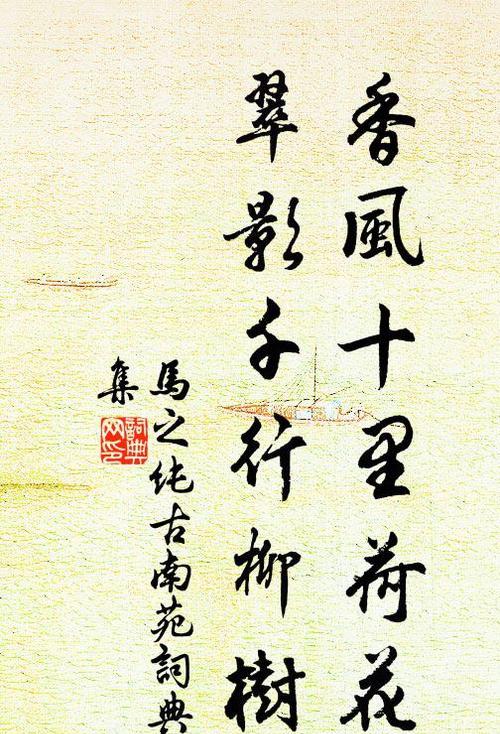 香風十里荷花
翠影千行柳樹
馬之純古南苑詞典
集
詞典網印